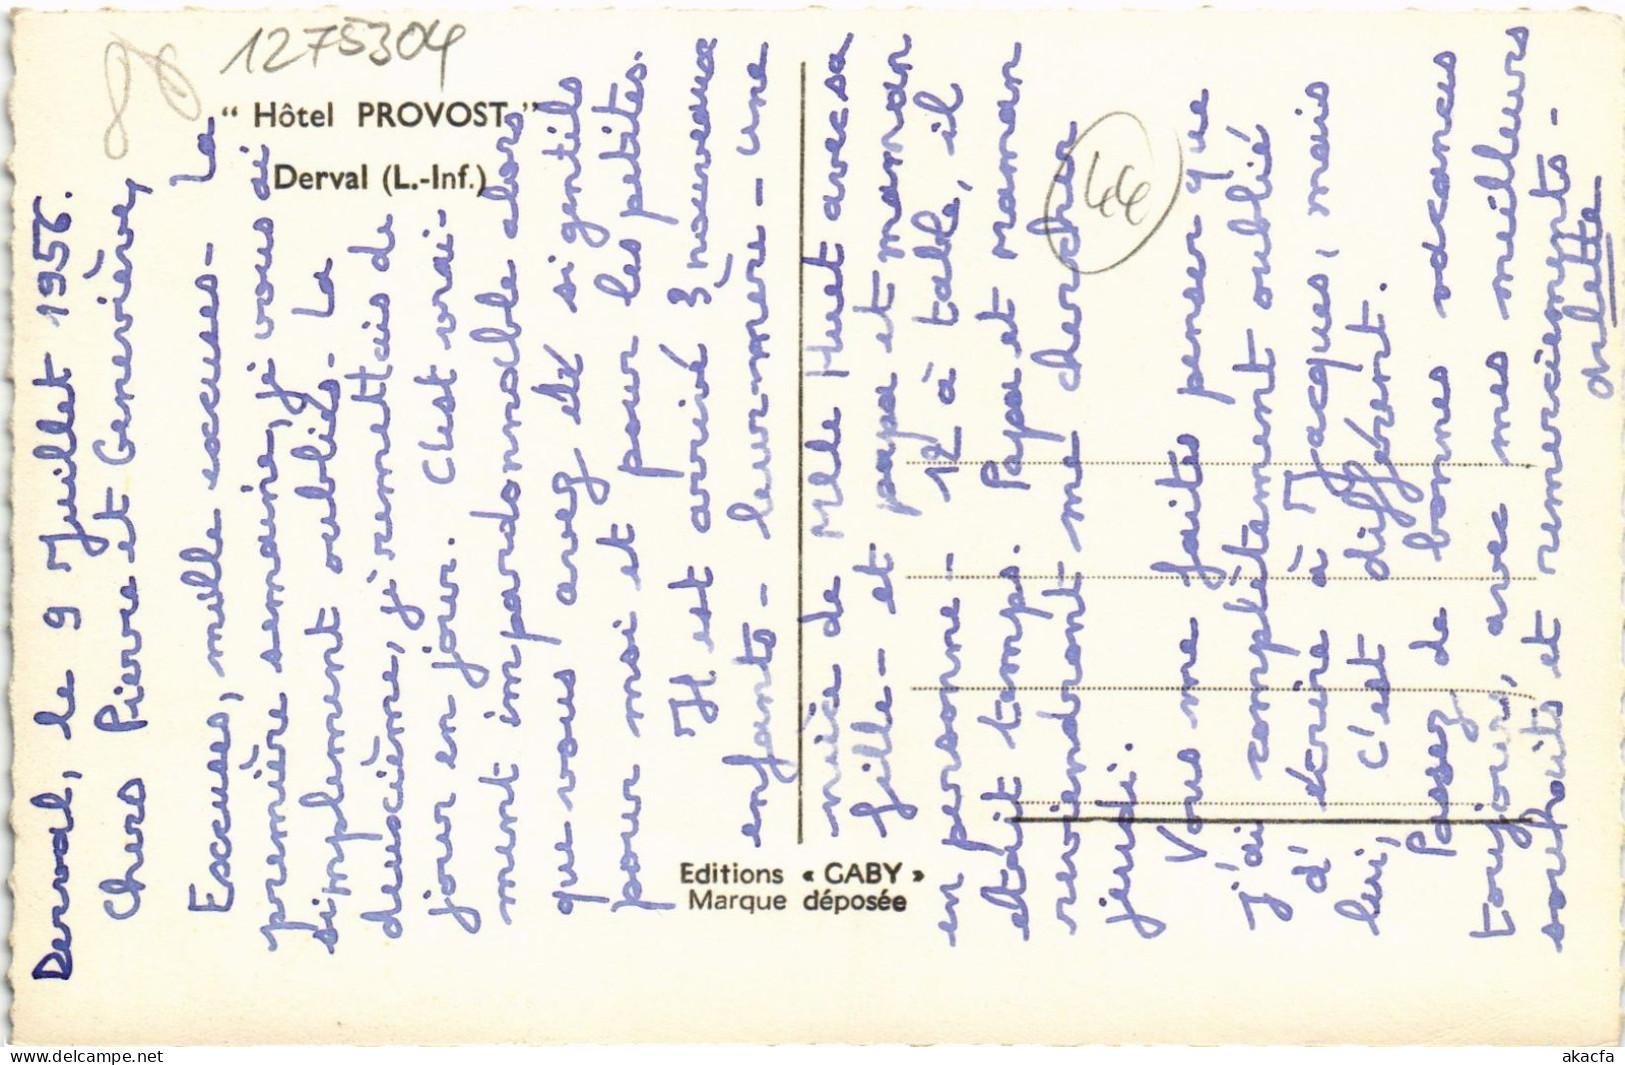 1275304
" Hôtel PROVOST "
Derval (L.-Inf.)
Derval, le 9 Juillet 1956.
Chers Pierre et Geneviève,
Excuses, mille excuses - La
première semaine, je vous ai
simplement oubliés - La
deuxième, j'remettais de
jour en jour. C'est vrai-
ment impardonnable alors
que vous avez été si gentils
pour moi et pour les petites.
Il est arrivé 3 nouveaux
enfants - leur mère - une
nièce de Melle Huet avec sa
fille - et papa et maman
en personne - 12 à table, il
était temps. Papa et maman
reviendront me chercher
jeudi.
Vous me faites penser que
j'ai complètement oublié
d'écrire à Jacques, mais
lui, c'est différent.
Passez de bonnes vacances
toujours, avec mes meilleurs
souhaits et remerciements -
Arlette
44
Editions « GABY »
Marque déposée
www.delcampe.net
akacfa